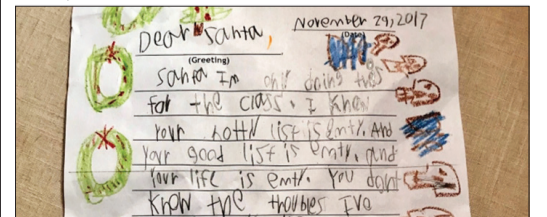 November 29, 2017
(Date)
Dear Santa,
(Greeting)
Santa Im only doing this
for the class. I know
your notty list is emty. And
your good list is emty. and
Your life is emty. You dont
know the troubles Ive